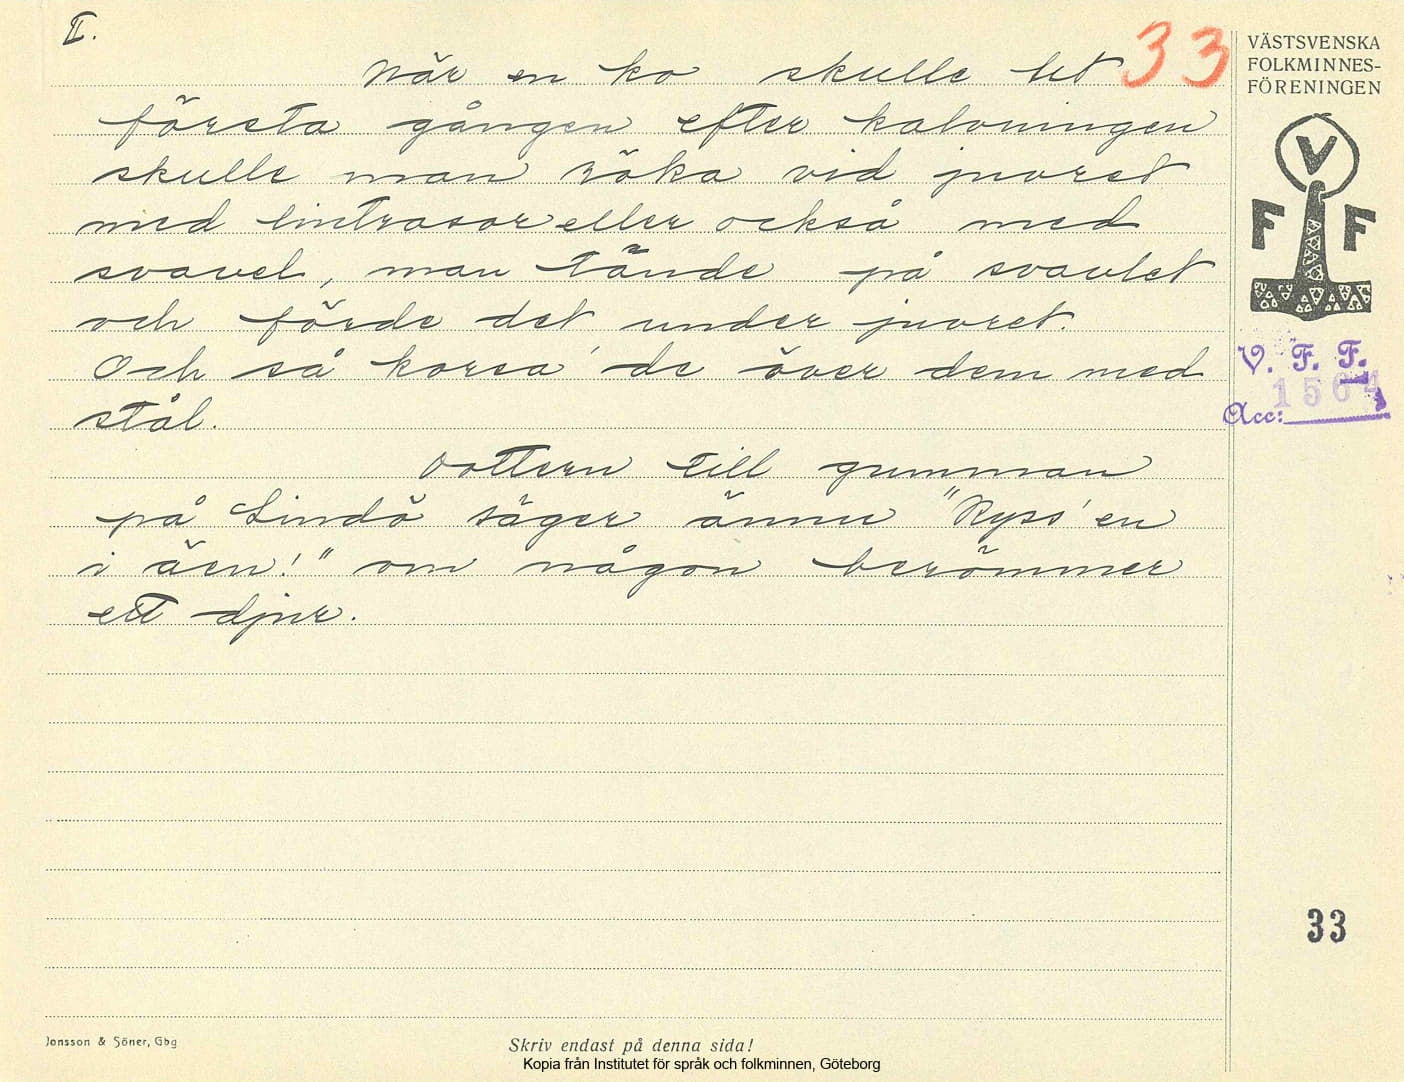 II.
33
När en ko skulle ut
första gången efter kalvningen
skulle man röka vid juvret
med lintrasor eller också med
svavel, man tände på svavlet
och förde det under juvret.
Och så korsa' de över dem med
stål.
Dottern till gumman
på Lindö säger ännu "Kyss' en
i äen!" om någon berömmer
ett djur.
VÄSTSVENSKA
FOLKMINNES-
FÖRENINGEN
V
F F
V. F. F.
1564
Acc:
33
Jonsson & Söner, Gbg
Skriv endast på denna sida!
Kopia från Institutet för språk och folkminnen, Göteborg